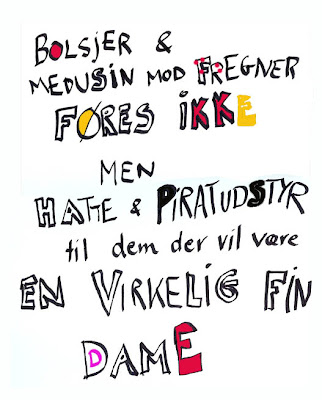 BOLSJER &
MEDUSIN MOD FREGNER
FØRES IKKE
MEN
HATTE & PIRATUDSTYR
til dem der vil være
EN VIRKELIG FIN
DAME